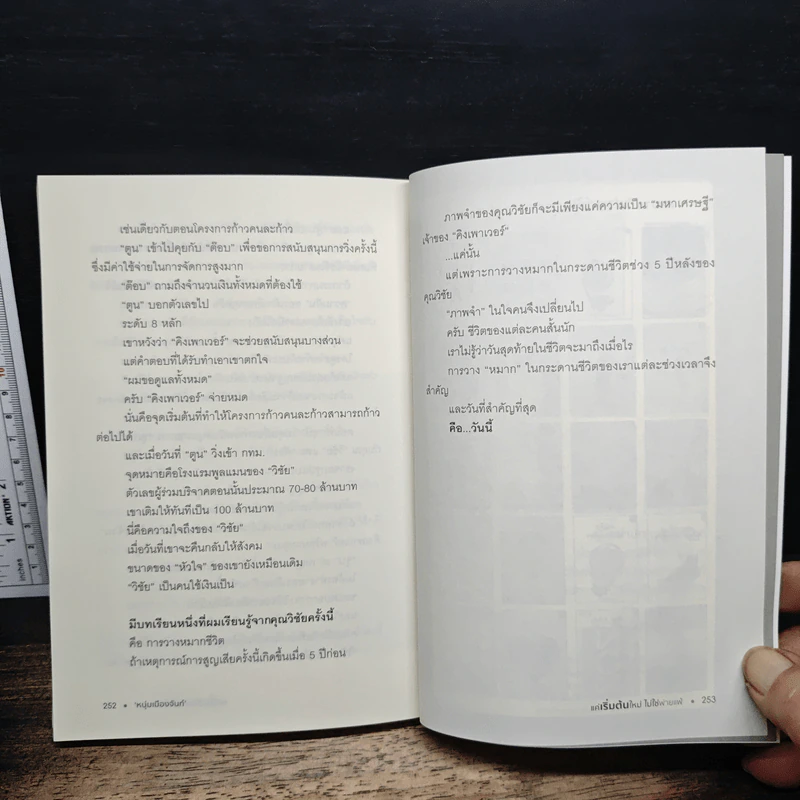 เช่นเดียวกับตอนโครงการก้าวคนละก้าว
"ตูน" เข้าไปคุยกับ "ต๊อบ" เพื่อขอการสนับสนุนการวิ่งครั้งนี้
ซึ่งมีค่าใช้จ่ายในการจัดการสูงมาก
"ต๊อบ" ถามถึงจำนวนเงินทั้งหมดที่ต้องใช้
"ตูน" บอกตัวเลขไป
ระดับ 8 หลัก
เขาหวังว่า "คิงเพาเวอร์" จะช่วยสนับสนุนบางส่วน
แต่คำตอบที่ได้รับทำเอาเขาตกใจ
"ผมขอดูแลทั้งหมด"
ครับ "คิงเพาเวอร์" จ่ายหมด
นั่นคือจุดเริ่มต้นที่ทำให้โครงการก้าวคนละก้าวสามารถก้าว
ต่อไปได้
และเมื่อวันที่ "ตูน" วิ่งเข้า กทม.
จุดหมายคือโรงแรมพูลแมนของ "วิชัย"
ตัวเลขผู้ร่วมบริจาคตอนนั้นประมาณ 70-80 ล้านบาท
เขาเติมให้ทันทีเป็น 100 ล้านบาท
นี่คือความใจถึงของ "วิชัย"
เมื่อวันที่เขาจะคืนกลับให้สังคม
ขนาดของ "หัวใจ" ของเขายังเหมือนเดิม
"วิชัย" เป็นคนใช้เงินเป็น
มีบทเรียนหนึ่งที่ผมเรียนรู้จากคุณวิชัยครั้งนี้
คือ การวางหมากชีวิต
ถ้าเหตุการณ์การสูญเสียครั้งนี้เกิดขึ้นเมื่อ 5 ปีก่อน
252 • 'หนุ่มเมืองจันท์'
ภาพจำของคุณวิชัยก็จะมีเพียงแค่ความเป็น "มหาเศรษฐี"
เจ้าของ "คิงเพาเวอร์"
...แค่นั้น
แต่เพราะการวางหมากในกระดานชีวิตช่วง 5 ปีหลังของ
คุณวิชัย
"ภาพจำ" ในใจคนจึงเปลี่ยนไป
ครับ ชีวิตของแต่ละคนสั้นนัก
เราไม่รู้ว่าวันสุดท้ายในชีวิตจะมาถึงเมื่อไร
การวาง "หมาก" ในกระดานชีวิตของเราแต่ละช่วงเวลาจึง
สำคัญ
และวันที่สำคัญที่สุด
คือ...วันนี้
แค่เริ่มต้นใหม่ ไม่ใช่พ่ายแพ้ • 253
inches 1 2 3